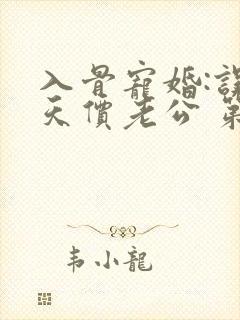 入骨寵婚:
天價老公 第
韦小龍